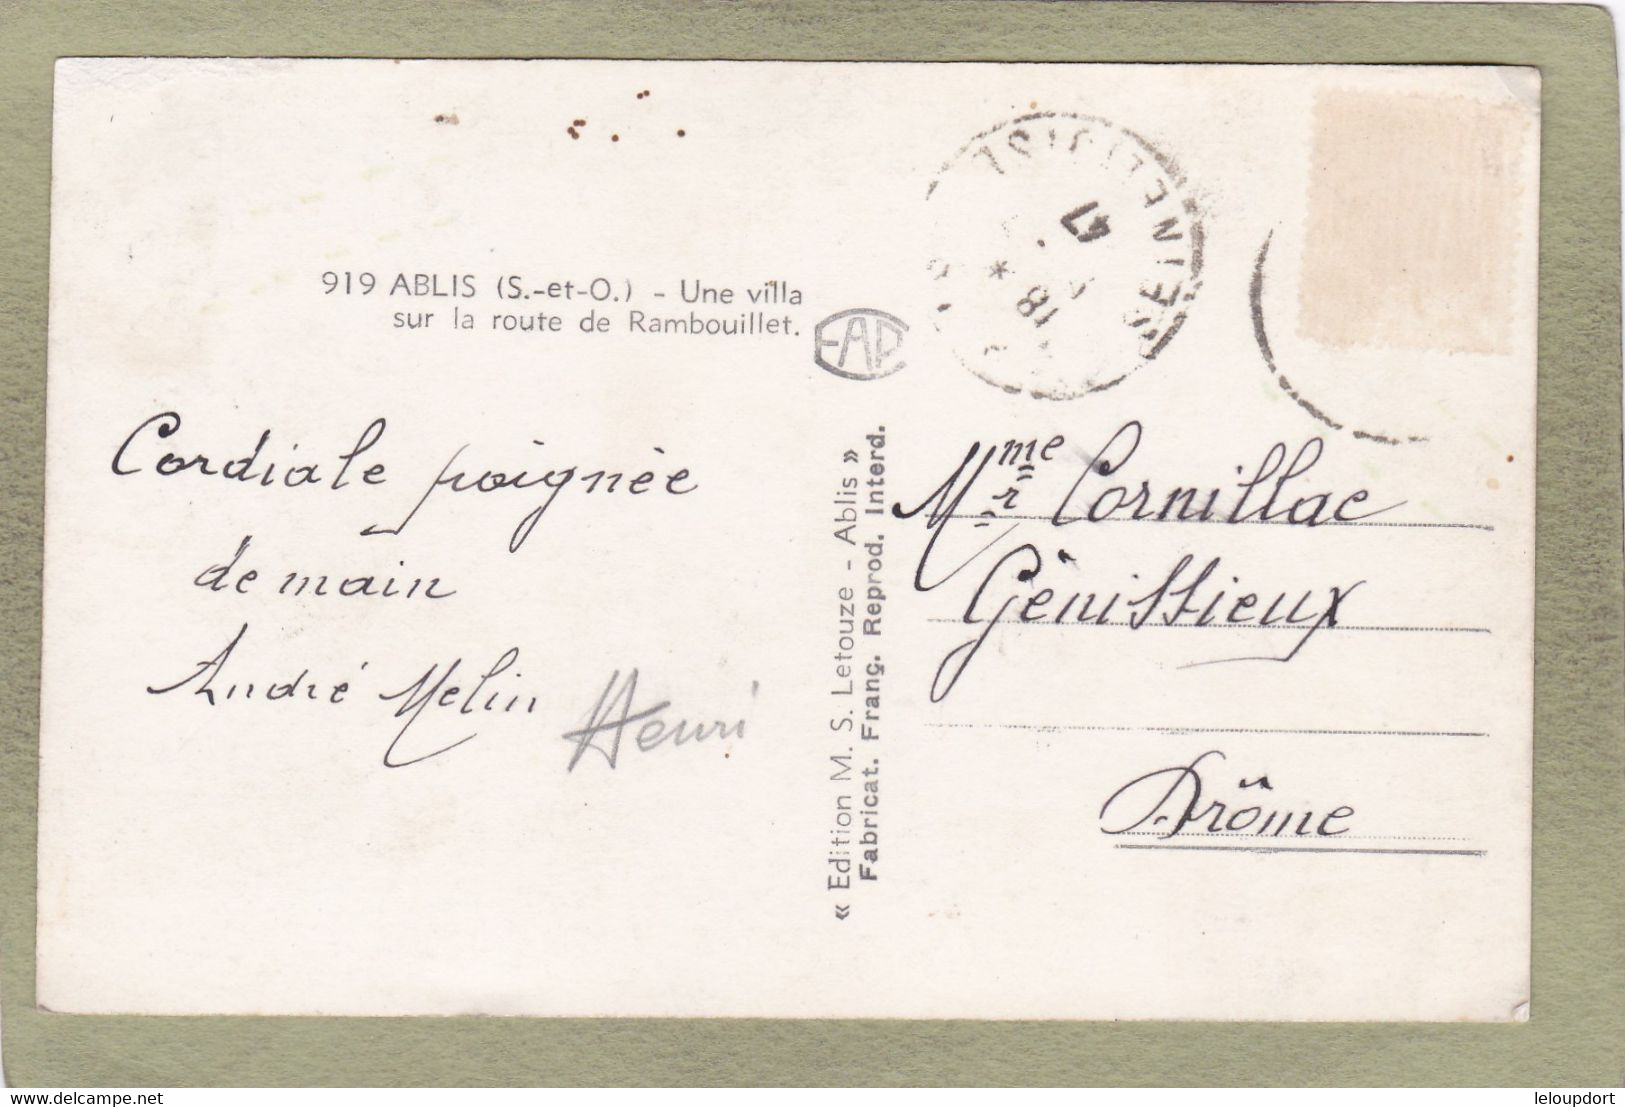 919 ABLIS (S.-et-O.) - Une villa
sur la route de Rambouillet.
EAP
Cordiale poignée
de main
André Melin
Henri
« Edition M. S. Letouze - Ablis »
Fabricat. Franç. Reprod. Interd.
18
47
Mme
Mr Cornillac
Génissieux
Drôme
www.delcampe.net
leloupdort